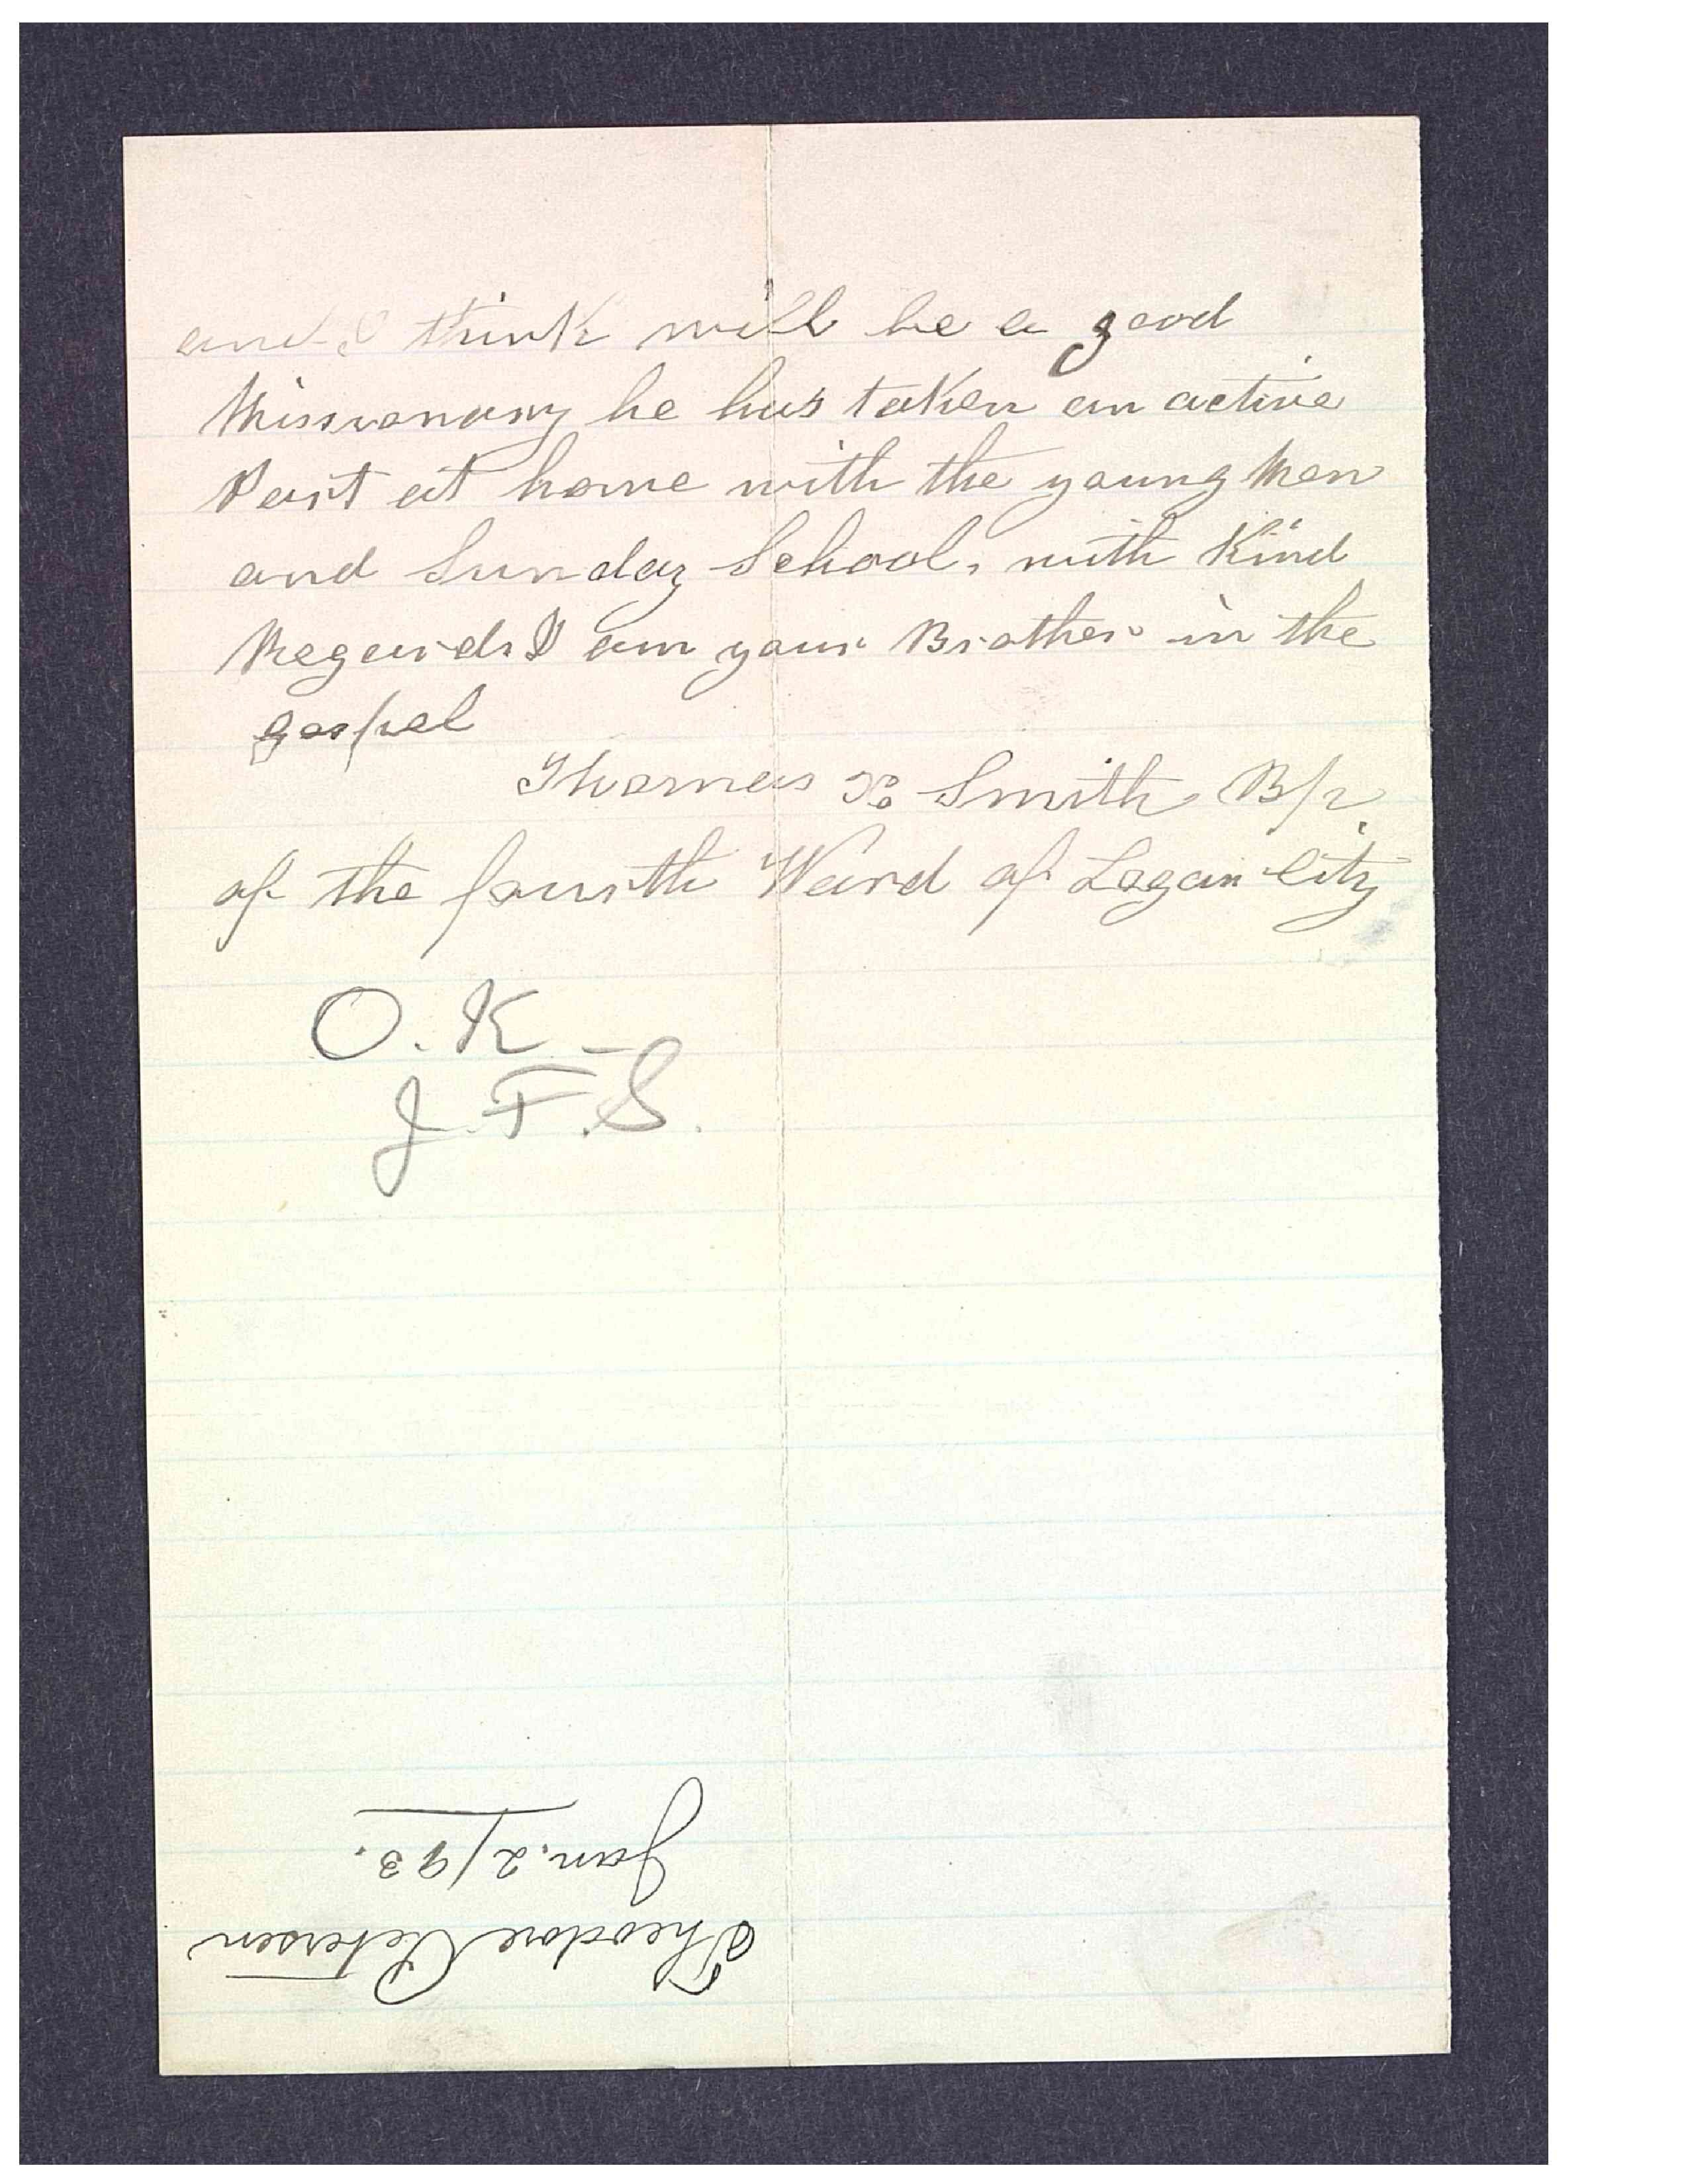 and I think will be a good
Missionary he has taken an active
Part at home with the young Men
and Sunday School, with Kind
Regards I am your Brother in the
gospel
Thomas X Smith Bp
of the fourth Ward of Logan City
O.K. -
J.F.S.
Theodore Petersen
Jan. 2/93.